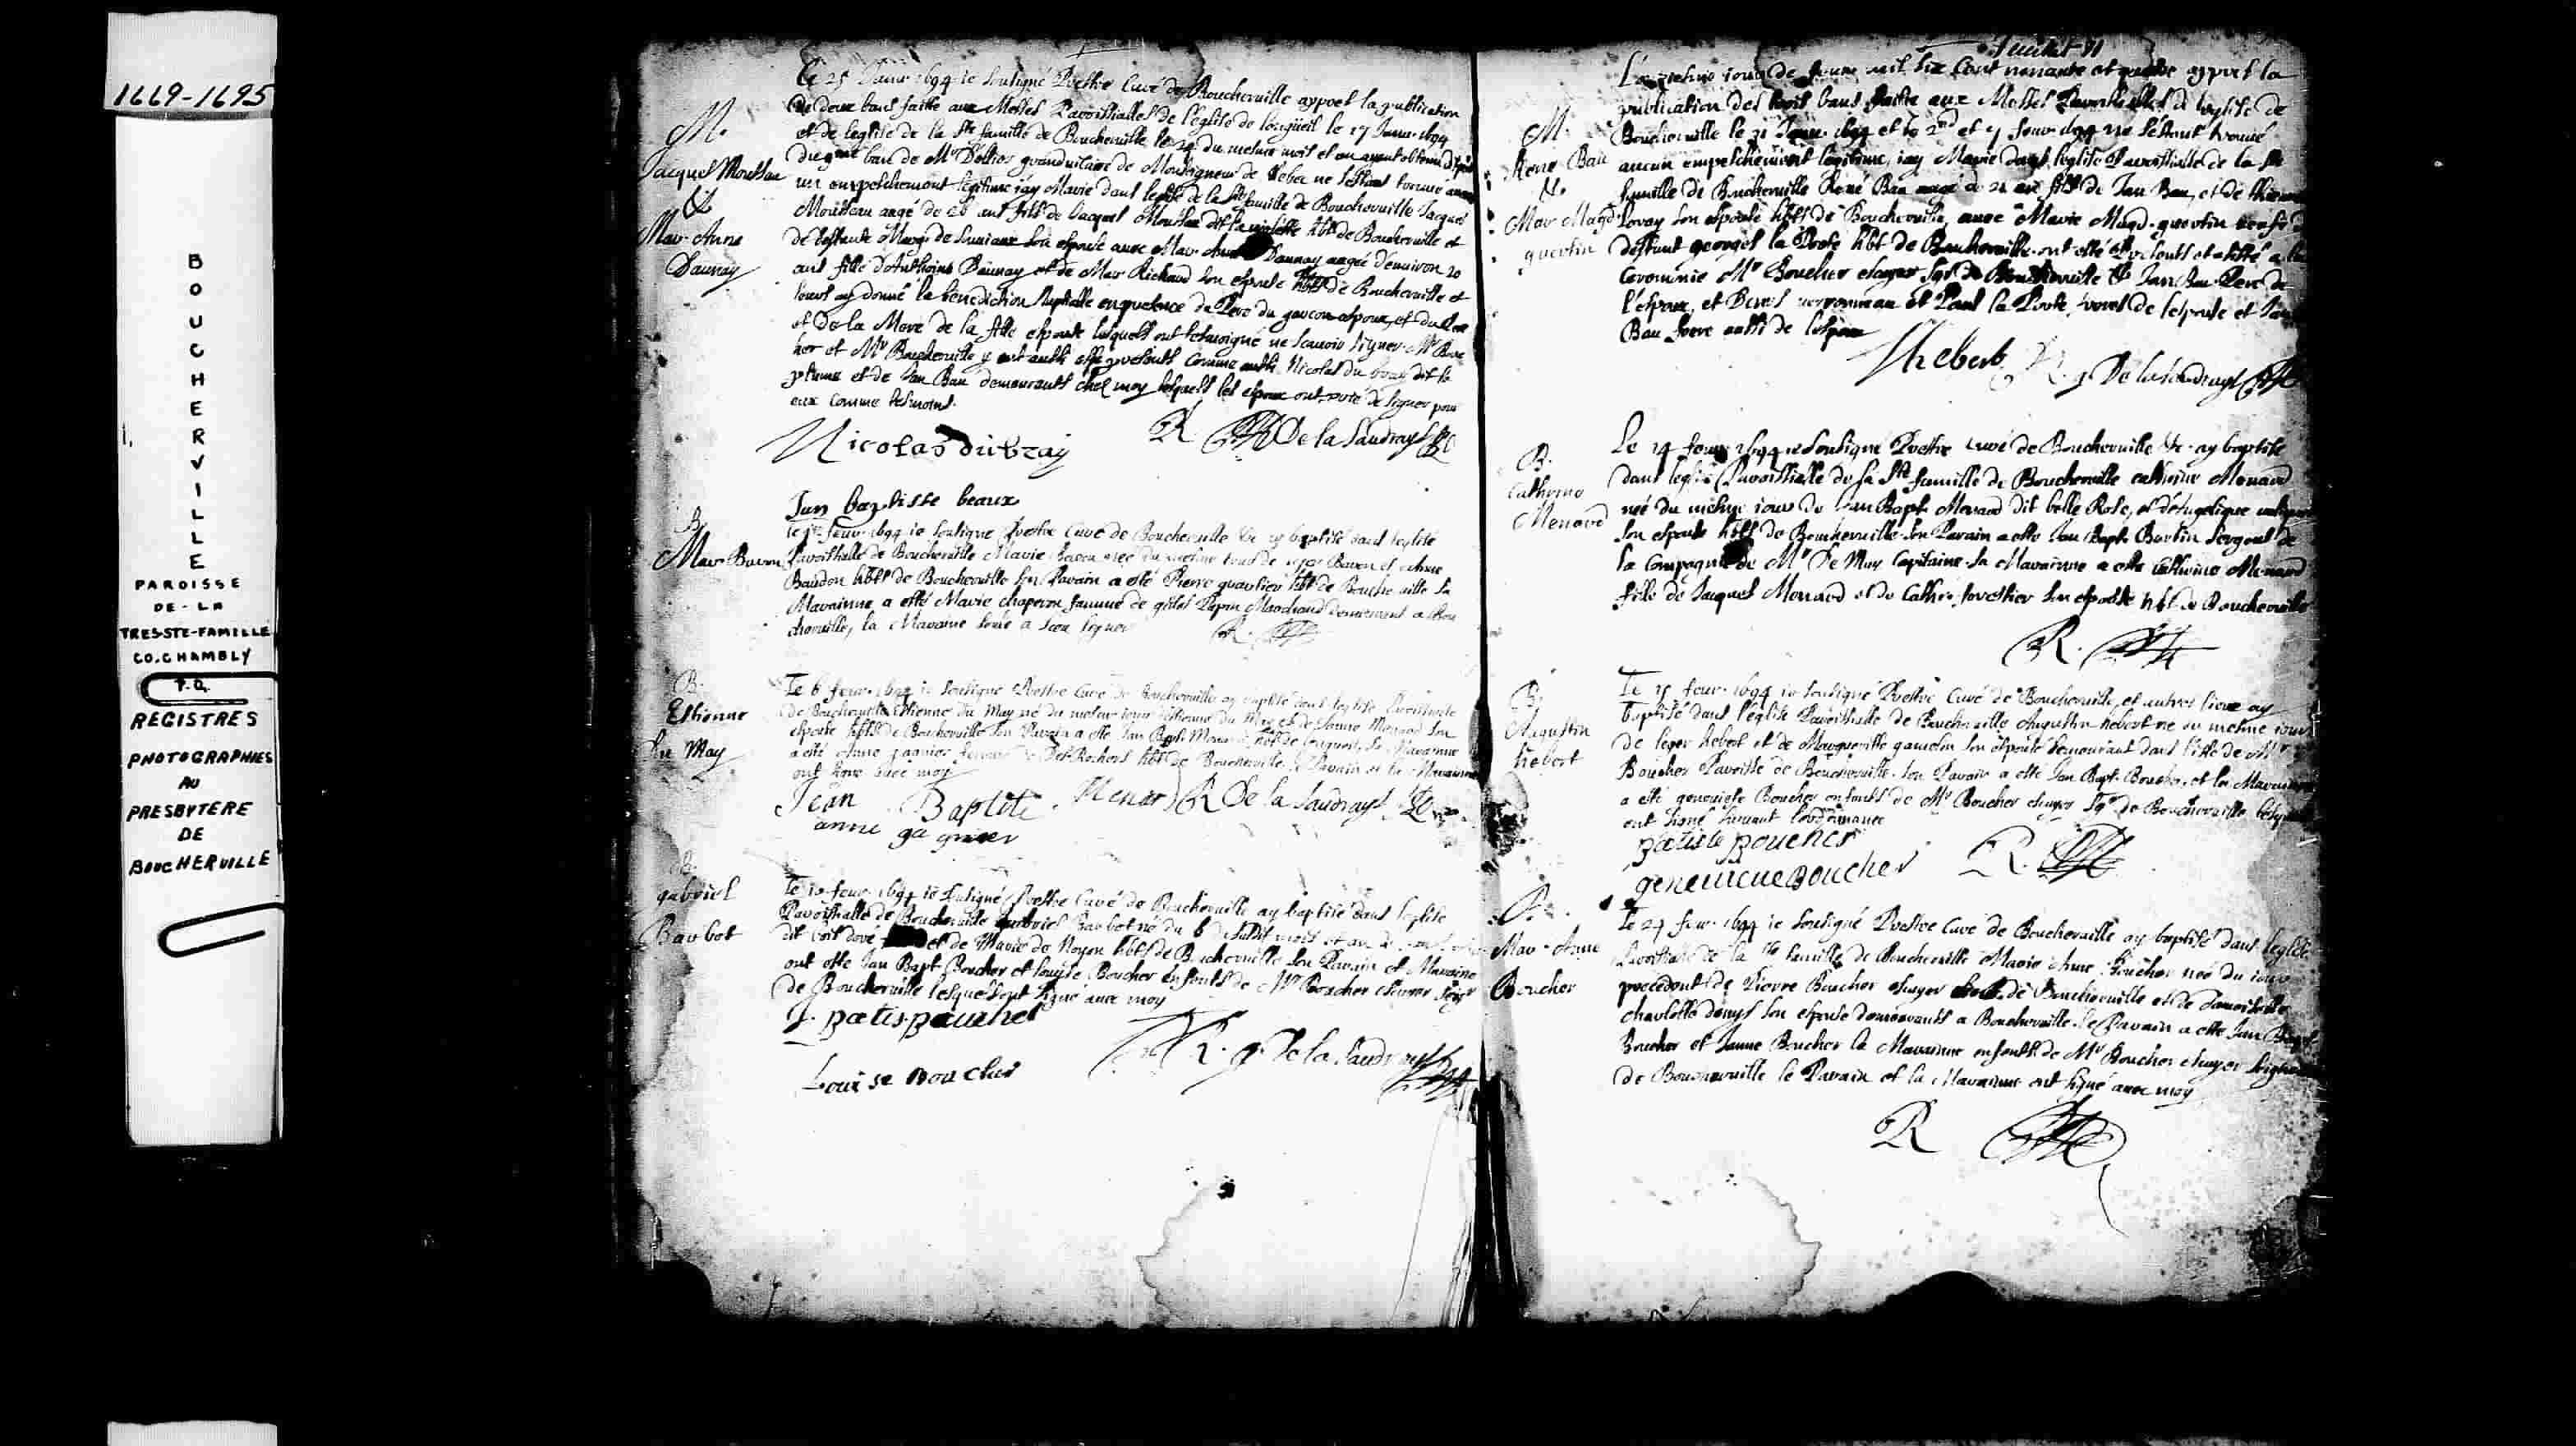 1669-1695
BOUCHERVILLE
PAROISSE
DE-LA
TRES-STE-FAMILLE
CO.CHAMBLY
P.Q.
REGISTRES
PHOTOGRAPHIES
AU
PRESBYTÈRE
DE
BOUCHERVILLE
M.
Jacques Mousseau
&
Mar. Anne
Daunay
Le 25 Janv. 1694 ie soussigné Prestre Curé de Boucherville apprès la publication
de deux bans faitte aux Messes Paroissialles de l'église de longueil le 17 Janv. 1694
et de leglise de la Ste famille de Boucherville le 24 du mesme mois et an ayant obtenu
du 3me ban de Mr Dollier grand vicaire de Monseigneur de Kebec ne sestant trouvé aucun
un empeschement legitime i'ay Marié dans leglise de la Ste famille de Boucherville Jacques
Mousseau aagé de 26 ans fils de Jacques Mousseau dit la violette hbt de Boucherville et
de deffunte Marg. de souviaux son espouse avec Mar. Anne Daunay aagée d'environ 20
ans fille d'Anthoine Daunay et de Mar Richard son espouse hbts de Boucherville et
leurs ay donné la bénédiction Nuptialle en presence du Pere du garcon espoux, et du Pere
et de la Mere de la fille espouse lesquels ont tesmoigné ne scavoir signer. Mr Bouc
her et Mr Boucherville y ont aussi esté presents comme aussi Nicolas du bray dit la
plume et de Jan Bau demeurants chez moy lesquels les espoux ont prié de signer pour
eux comme tesmoins.
Nicolas dubray R De la Saudrays
Jan baptisse beaux
B
Mar Baron
le 1er feuv. 1694 ie soutigné Prestre Curé de Boucherville &c ay baptisé dans leglise
Paroissialle de Boucherville Marie Baron née du mesme iour de Baron et Anne
Baudon hbts de Boucherville son Parain a esté Pierre hbt de Boucherville sa
Maraine a esté Marie chaperon famme de gilles Papin Marchand demeurant a Bou
cherville, la Maraine seule a sceu signer R.
B.
Estienne
Du May
Le 6 feuv. 1694 ie soutigné Prestre Curé de Boucherville ay baptisé dans leglise Paroissialle
de Boucherville Estienne du May né du mesme iour d'Estienne du May et de Janne Menard son
espouse hbts de Boucherville son Parain a esté Jan Bapt. Menard hbt de longueil sa Maraine
a esté Anne gagnier femme de Des Rochers hbt de Boucherville. le Parain et la Maraine
ont signé avec moy
Jean Baptiste Menard R De la Saudrays
anne ga gnier
B.
gabriel
Barbot
Le 10 feuv. 1694 ie soutigné Prestre Curé de Boucherville ay baptisé dans leglise
Paroissialle de Boucherville gabriel Barbot né du 6 du susdit mois et an
dit et de Marie de Noyon hbts de Boucherville son Parain et Maraine
ont esté Jan Bapt. Boucher et Louyse Boucher enfants de Mr Boucher escuyer seigr
de Boucherville lesquels ont signé avec moy
J. batis bouche
Louise Boucher R. g. De la Saudrays
feuillet 81
M.
Rene Bau
&
Mar Magd.
quentin
iour de feuv. mil six Cent nonante et quatre apprès la
publication des trois bans faitte aux Messes Paroissialles de leglise de
Boucherville le 31 Janv. 1694 et le 2nd et 7 feuv. 1694 ne s'estant trouvé
aucun empeschement legitime, i'ay Marié dans leglise Paroissialle de la Ste
famille de Boucherville René Bau aagé de 21 ans fils de Jan Bau, et de
Loray son espouse hbts de Boucherville, avec Marie Magd. quentin
deffunt georges la Porte hbt de Boucherville. ont esté presents et assisté a la
Ceremonie Mr Boucher escuyer sgr de Boucherville & Jan Bau Pere de
l'espoux, et Denis verronneau et Paul la Porte, de lespouse et Jan
Bau frere aussi de lespoux
Jhebert R. g De la Saudrays
B.
Catherine
Menard
Le 14 feuv. 1694 ie soutigné Prestre Curé de Boucherville &c. ay baptisé
dans leglise Paroissialle de la Ste famille de Boucherville catherine Menard
née du mesme iour de Jan Bapt. Menard dit belle Rose, et de
son espouse hbts de Boucherville son Parain a esté Jan Bapt. Bertin sergent de
la Compagnie de Mr De Muy Capitaine. sa Maraine a esté catherine Menard
fille de Jacques Menard et de Cathe. forestier son espouse hbt de Boucherville
R.
B.
Augustin
hebert
Le 15 feuv. 1694 ie soutigné Prestre Curé de Boucherville, et autres lieux ay
baptisé dans l'église Paroissialle de Boucherville Augustin hebert né du mesme iour
de leger hebert et de Margueritte gamelin son espouse demeurant dans l'isle de Mr
Boucher Paroisse de Boucherville. son Parain a esté Jan Bapt. Boucher, et la Maraine
a esté genevieve Boucher enfants de Mr Boucher escuyer Sgr de Boucherville
ont signé suivant l'ordonnance
batiste boucher
genevieve Boucher R.
B.
Mar-Anne
Boucher
Le 27 feuv. 1694 ie soutigné Prestre Curé de Boucherville ay baptisé dans leglise
Paroissialle de la Ste famille de Boucherville Marie Anne Boucher née du iour
precedent de Pierre Boucher escuyer de Boucherville et de Damoiselle
charlotte denys son espouse demeurants a Boucherville. le Parain a esté Jan Bapt.
Boucher et Janne Boucher la Maraine enfants de Mr Boucher escuyer seigneur
de Boucherville le Parain et la Maraine ont signé avec moy
R